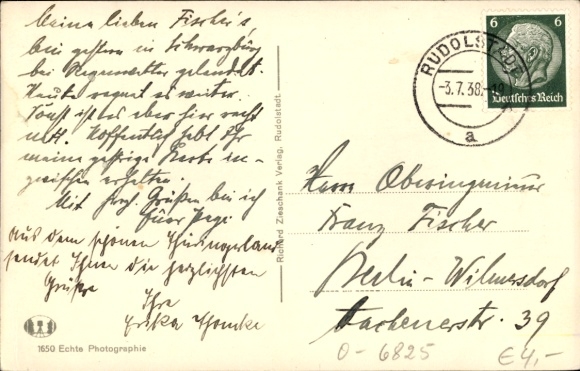 Meine lieben Fischer's,
bin gestern in Schwarzburg
bei Regenwetter gelandet.
Heute regnet es weiter.
Sonst ist es aber hier recht
nett. Hoffentlich habt Ihr
meine gestrige Karte in-
zwischen erhalten.
Mit Grüßen bin ich
Euer
Aus dem schönen Thüringerland
sendet Ihnen die herzlichsten
Grüße
Ihre
Erika
1650 Echte Photographie
Richard Zieschank Verlag, Rudolstadt.
6 6
Deutsches Reich
RUDOLSTADT
-3.7.38.-19
a
Herrn Oberingenieur
Franz Fischer
Berlin-Wilmersdorf
Aachenerstr. 39
0-6825
€4,-